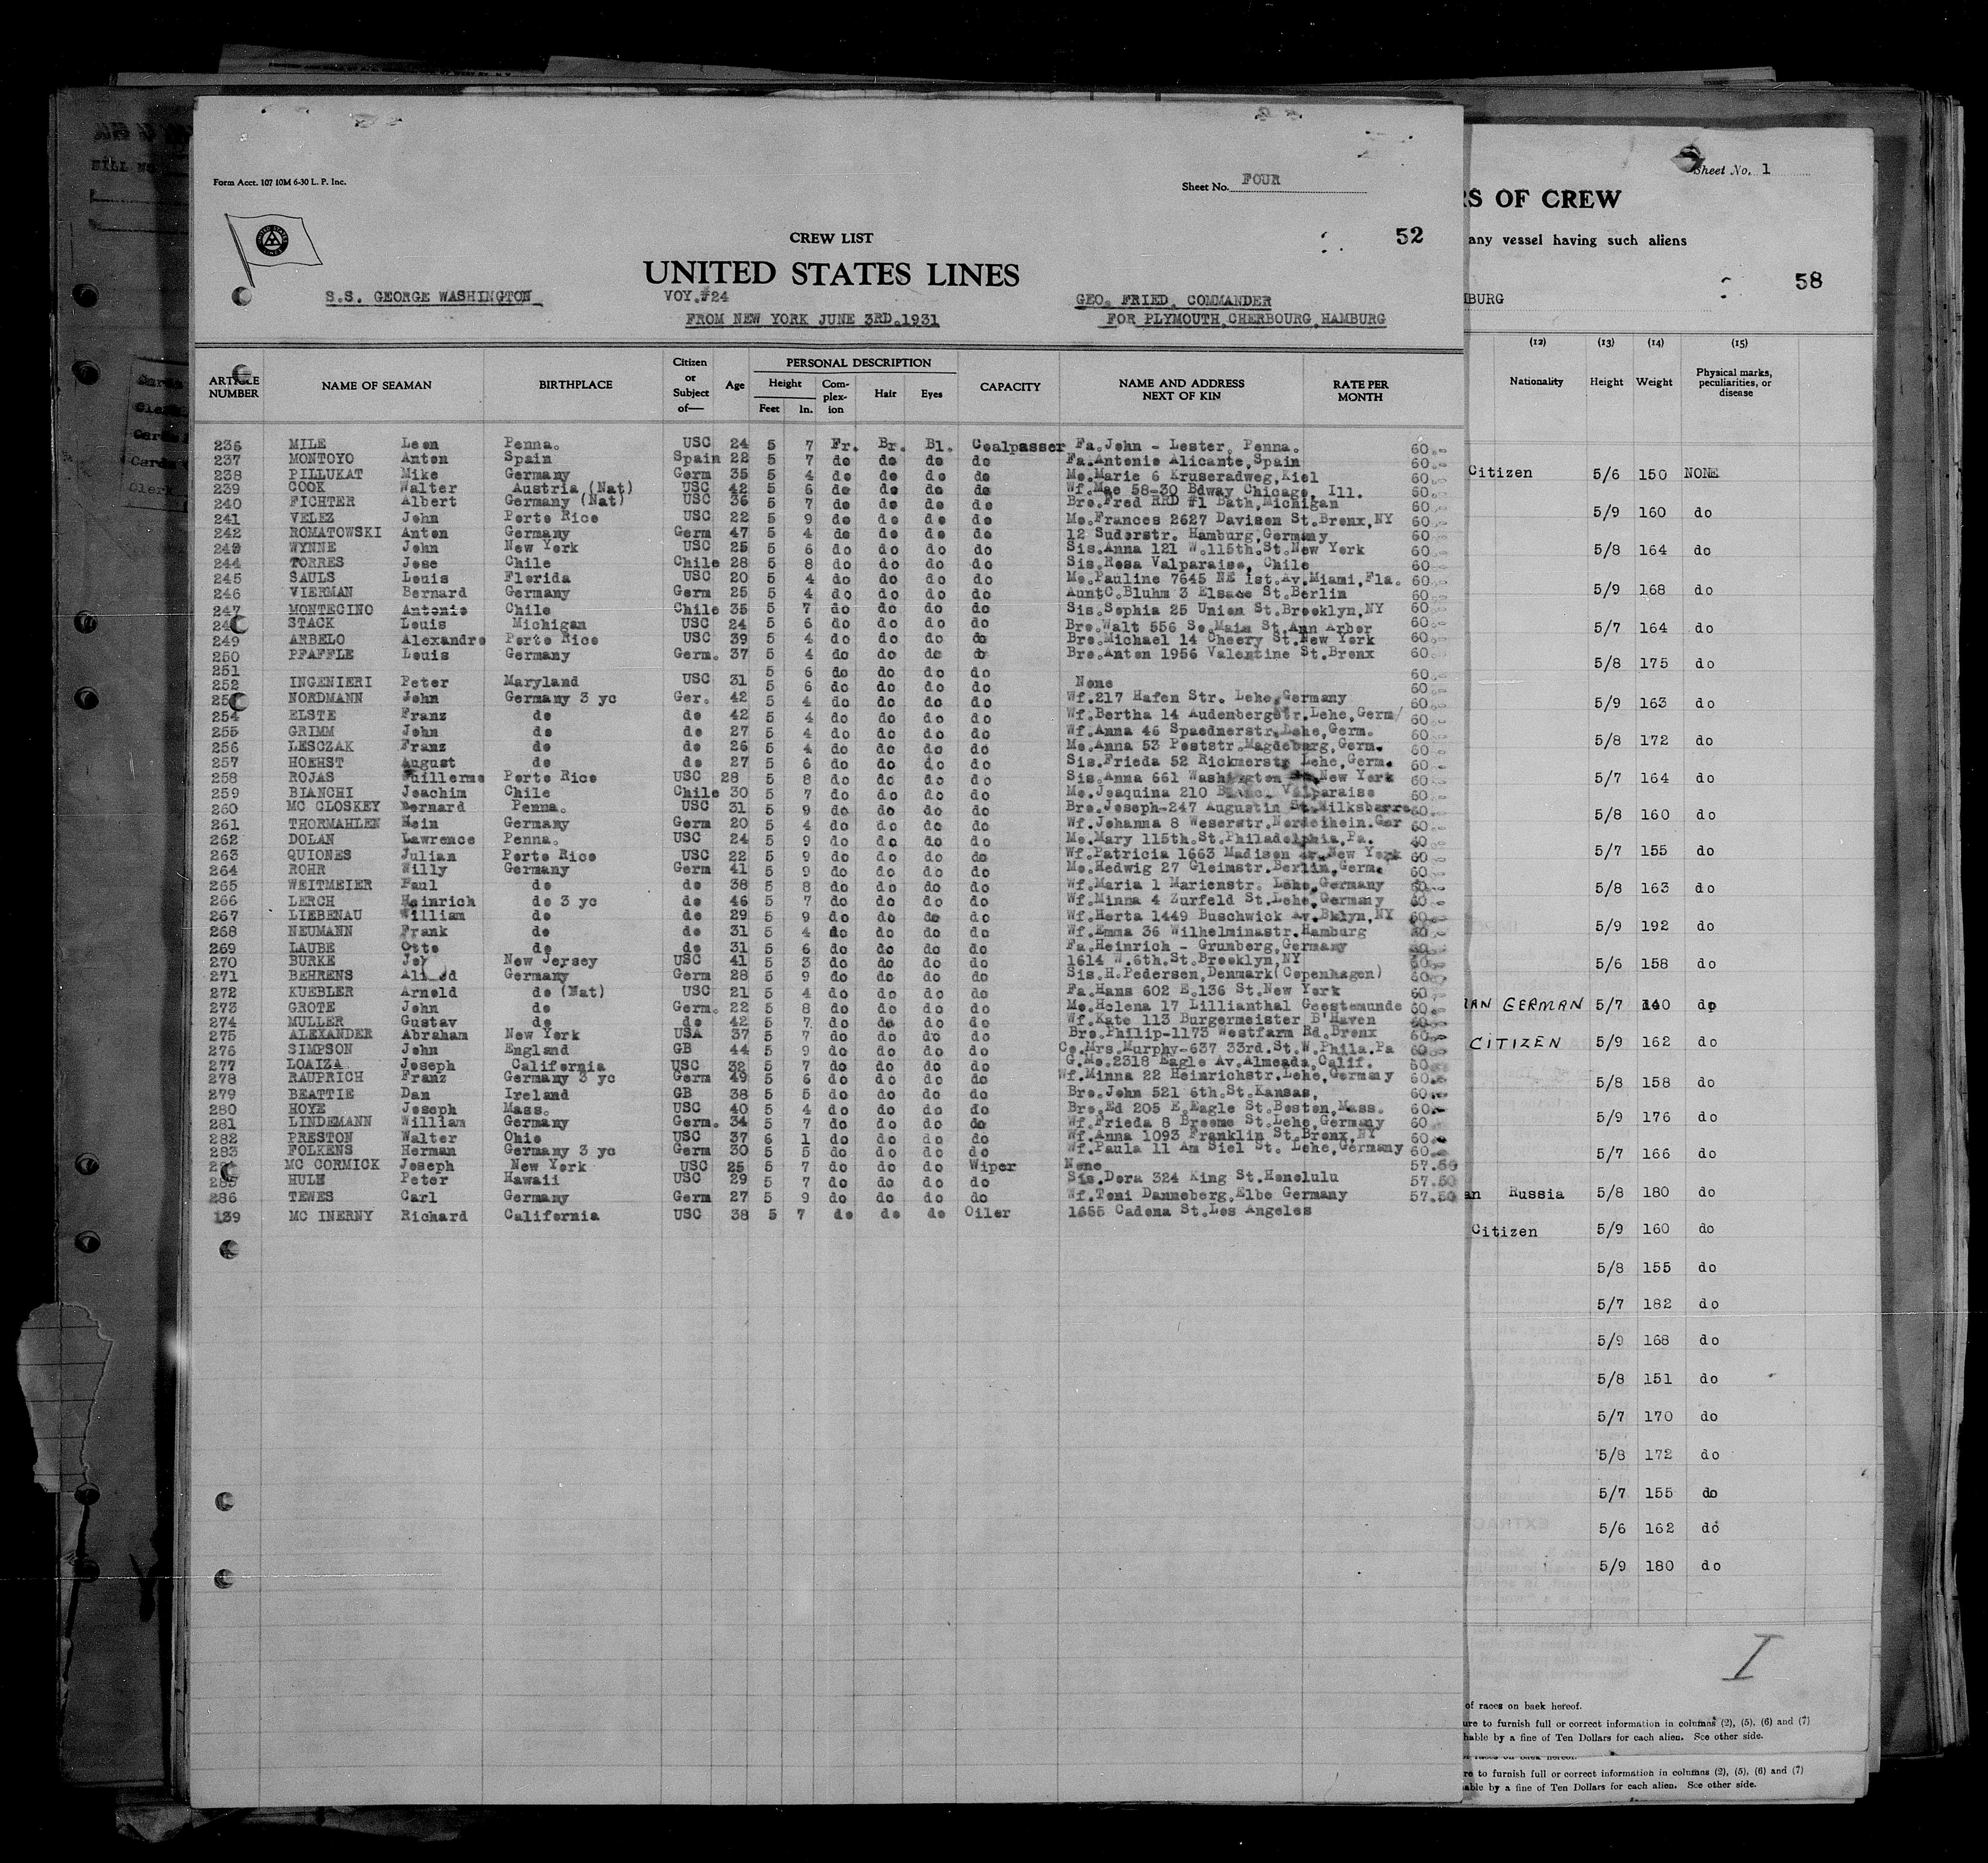 Form Acct. 107 10M 6-30 L. P. Inc.
Sheet No. FOUR
52
CREW LIST
UNITED STATES LINES
S.S. GEORGE WASHINGTON VOY.#24 GEO. FRIED, COMMANDER
FROM NEW YORK JUNE 3RD.1931 FOR PLYMOUTH,CHERBOURG,HAMBURG
ARTICLE NUMBER NAME OF SEAMAN BIRTHPLACE Citizen or Subject of— Age PERSONAL DESCRIPTION Height Feet In. Com-plex-ion Hair Eyes CAPACITY NAME AND ADDRESS NEXT OF KIN RATE PER MONTH
236 MILE Leon Penna. USC 24 5 7 Fr. Br. Bl. Coalpasser Fa.John - Lester, Penna. 60.-
237 MONTOYO Anton Spain Spain 22 5 7 do do do do Fa.Antonio Alicante,Spain 60.-
238 PILLUKAT Mike Germany Germ 35 5 4 do do do do Mo.Marie 6 Kruseradweg,Kiel 60.-
239 COOK Walter Austria (Nat) USC 42 5 6 do do do do Wf.Mae 58-30 Bdway Chicago, Ill. 60.-
240 FICHTER Albert Germany (Nat) USC 36 5 7 do do do do Bro.Fred RRD #1 Bath,Michigan 60.-
241 VELEZ John Porto Rico USC 22 5 9 do do do do Mo.Frances 2627 Davison St.Bronx,NY 60.-
242 ROMATOWSKI Anton Germany Germ 47 5 4 do do do do 12 Suderstr. Hamburg,Germany 60.-
243 WYNNE John New York USC 25 5 6 do do do do Sis.Anna 121 W.115th.St.New York 60.-
244 TORRES Jose Chile Chile 28 5 8 do do do do Sis.Rosa Valparaiso, Chile 60.-
245 SAULS Louis Florida USC 20 5 4 do do do do Mo.Pauline 7645 NE 1st.Av.Miami,Fla. 60.-
246 VIERMAN Bernard Germany Germ 25 5 4 do do do do AuntC.Bluhm 3 Elsace St.Berlin 60.-
247 MONTECINO Antonio Chile Chile 35 5 7 do do do do Sis.Sophia 25 Union St.Brooklyn,NY 60.-
24 STACK Louis Michigan USC 24 5 6 do do do do Bro.Walt 556 So.Main St.Ann Arbor 60.-
249 ARBELO Alexandro Porto Rico USC 39 5 4 do do do do Bro.Michael 14 Cheery St.New York 60.-
250 PFAFFLE Louis Germany Germ. 37 5 4 do do do do Bro.Anton 1956 Valentine St.Bronx 60.-
251 5 6 do do do do 60.-
252 INGENIERI Peter Maryland USC 31 5 6 do do do do None 60.-
25 NORDMANN John Germany 3 yc Ger. 42 5 4 do do do do Wf.217 Hafen Str. Lehe,Germany 60.-
254 ELSTE Franz do do 42 5 4 do do do do Wf.Bertha 14 Audenbergstr.Lehe,Germ/ 60.-
255 GRIMM John do do 27 5 4 do do do do Wf.Anna 46 Spaednerstr.Lehe,Germ. 60.-
256 LESCZAK Franz do do 26 5 4 do do do do Mo.Anna 53 Poststr.Magdeburg,Germ. 60.-
257 HOEHST August do do 27 5 6 do do do do Sis.Frieda 52 Rickmerstr Lehe,Germ. 60.-
258 ROJAS Guillermo Porto Rico USC 28 5 8 do do do do Sis.Anna 661 Washington New York 60.-
259 BIANCHI Joachim Chile Chile 30 5 7 do do do do Mo.Joaquina 210 Valparaiso 60.-
260 MC CLOSKEY Bernard Penna. USC 31 5 9 do do do do Bro.Joseph-247 Augustin St.Wilksbarre 60.-
261 THORMAHLEN Hein Germany Germ 20 5 4 do do do do Wf.Johanna 8 Weserstr. Ger 60.-
262 DOLAN Lawrence Penna. USC 24 5 9 do do do do Mo.Mary 115th.St.Philadelphia,Pa. 60.-
263 QUIONES Julian Porto Rico USC 22 5 9 do do do do Wf.Patricia 1663 Madison Av.New York 60.-
264 ROHR Willy Germany Germ 41 5 9 do do do do Mo.Hedwig 27 Gleimstr.Berlin,Germ. 60.-
265 WEITMEIER Paul do do 38 5 8 do do do do Wf.Maria 1 Marienstr. Lehe,Germany 60.-
266 LERCH Heinrich do 3 yc do 46 5 7 do do do do Wf.Minna 4 Zurfeld St.Lehe,Germany 60.-
267 LIEBENAU William do do 29 5 9 do do do do Wf.Herta 1449 Buschwick Av.Bklyn,NY 60.-
268 NEUMANN Frank do do 31 5 4 do do do do Wf.Emma 36 Wilhelminastr.Hamburg 60.-
269 LAUBE Otto do do 31 5 6 do do do do Fa.Heinrich - Grunberg,Germany 60.-
270 BURKE New Jersey USC 41 5 3 do do do do 1614 W.6th.St.Brooklyn,NY 60.-
271 BEHRENS Germany Germ 28 5 9 do do do do Sis.H.Pedersen,Denmark(Copenhagen) 60.-
272 KUEBLER Arnold do (Nat) USC 21 5 4 do do do do Fa.Hans 602 E.136 St.New York 60.-
273 GROTE John do Germ. 22 5 8 do do do do Mo.Helena 17 Lillianthal Geestemunde 60.-
274 MULLER Gustav do do 42 5 7 do do do do Wf.Kate 113 Burgermeister B'Haven 60.-
275 ALEXANDER Abraham New York USA 37 5 7 do do do do Bro.Philip-1173 Westfarm Rd.Bronx 60.-
276 SIMPSON John England GB 44 5 9 do do do do Co.Mrs.Murphy-637 33rd.St.W.Phila.Pa 60.-
277 LOAIZA Joseph California USC 32 5 7 do do do do G.Mo.2318 Eagle Av.Almeada,Calif. 60.-
278 RAUPRICH Franz Germany 3 yc Germ 49 5 6 do do do do Wf.Minna 22 Heinrichstr.Lehe,Germany 60.-
279 BEATTIE Dan Ireland GB 38 5 5 do do do do Bro.John 521 6th.St.Kansas, 60.-
280 HOYE Joseph Mass. USC 40 5 4 do do do do Bro.Ed 205 E.Eagle St.Boston,Mass. 60.-
281 LINDEMANN William Germany Germ. 34 5 7 do do do do Wf.Frieda 8 Broome St.Lehe,Germany 60
282 PRESTON Walter Ohio USC 37 6 1 do do do do Wf.Anna 1093 Franklin St.Bronx,NY 60.-
283 FOLKENS Herman Germany 3 yc Germ 30 5 5 do do do do Wf.Paula 11 Am Siel St. Lehe,Germany 60.-
MC CORMICK Joseph New York USC 25 5 7 do do do Wiper None 57.50
285 HULH Peter Hawaii USC 29 5 7 do do do do Sis.Dora 324 King St.Honolulu 57.50
286 TEWES Carl Germany Germ 27 5 9 do do do do Wf.Toni Danneberg,Elbe Germany 57.50
139 MC INERNY Richard California USC 38 5 7 do do do Oiler 1655 Cadena St.Los Angeles
Sheet No. 1
RS OF CREW
any vessel having such aliens
58
MBURG
(12) (13) (14) (15)
Nationality Height Weight Physical marks, peculiarities, or disease
Citizen 5/6 150 NONE
5/9 160 do
5/8 164 do
5/9 168 do
5/7 164 do
5/8 175 do
5/9 163 do
5/8 172 do
5/7 164 do
5/8 160 do
5/7 155 do
5/8 163 do
5/9 192 do
5/6 158 do
AN GERMAN 5/7 140 do
CITIZEN 5/9 162 do
5/8 158 do
5/9 176 do
5/7 166 do
an Russia 5/8 180 do
Citizen 5/9 160 do
5/8 155 do
5/7 182 do
5/9 168 do
5/8 151 do
5/7 170 do
5/8 172 do
5/7 155 do
5/6 162 do
5/9 180 do
I
of races on back hereof.
ure to furnish full or correct information in columns (2), (5), (6) and (7)
hable by a fine of Ten Dollars for each alien. See other side.
re to furnish full or correct information in columns (2), (5), (6) and (7)
able by a fine of Ten Dollars for each alien. See other side.